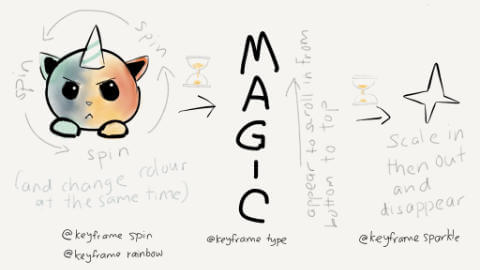 spin
spin
spin
(and change colour
at the same time)
@keyframe spin
@keyframe rainbow
MAGIC
appear to scroll in from
bottom to top
@keyframe type
Scale in
then out
and
disappear
@keyframe sparkle